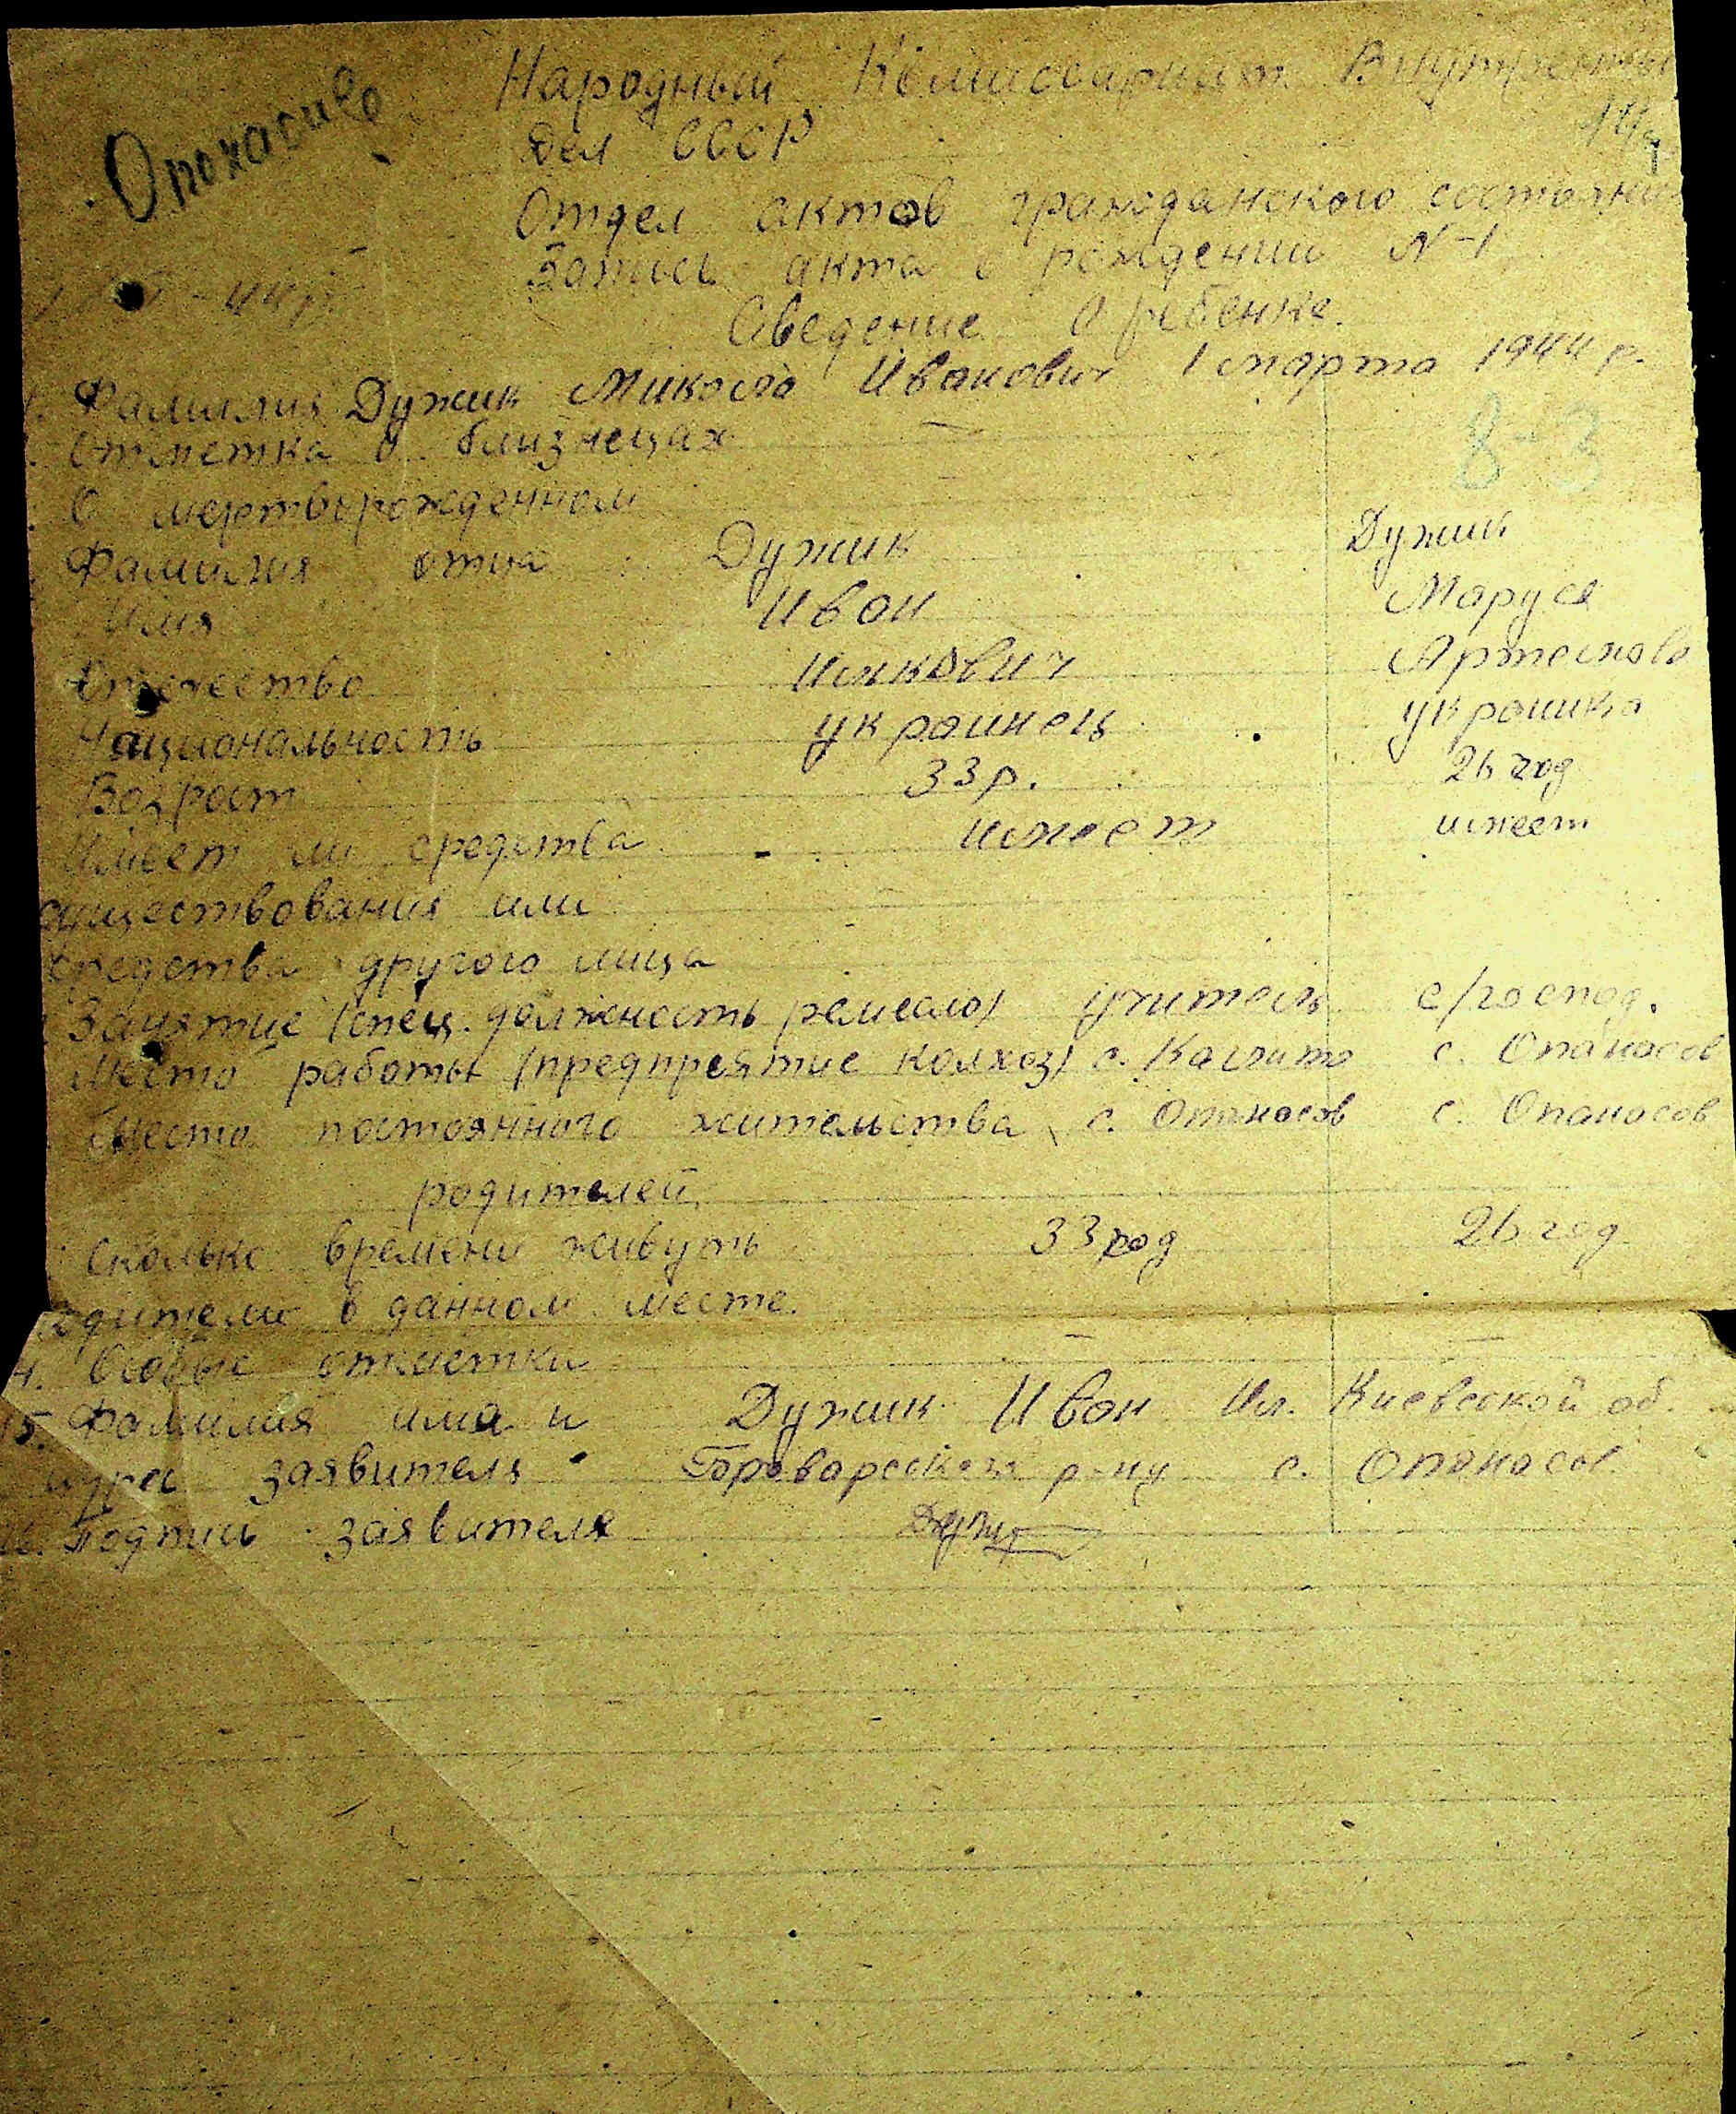 Народный Комиссариат Внутренних
Дел СССР
Отдел актов гражданского состояни
Запись акта о рождении N-1
Сведение О ребенке.
Фамилия Дужик Микола Иванович 1 марта 1944 р.
Отметка о близнецах —
8-3
О мертворожденном
Фамилия отца Дужик Дужик
Имя Иван Маруся
Отчество Илькович Артемова
Национальность украинець украинка
Возраст 33 р. 26 год
Имеет ли средства имеет имеет
существования или
средства другого лица
Занятие (спец. должность ремесло) Учитель с/господ.
Место работы (предприятие колхоз) с. с. Опанасов
Место постоянного жительства с. Опанасов с. Опанасов
родителей
Сколько времени живуть 33 год 26 год
родители в данном месте.
4. Особые отметки — —
15. Фамилия има и Дужик Иван Ил. Киевской об.
адрес заявителя р-ну с. Опанасов
16. Подпись заявителя Дужик